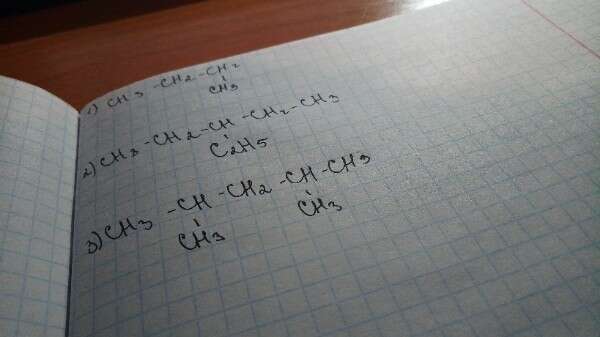 1) CH3 - CH2 - CH2
CH3
2) CH3 - CH2 - CH - CH2 - CH3
C2H5
3) CH3 - CH - CH2 - CH - CH3
CH3 CH3